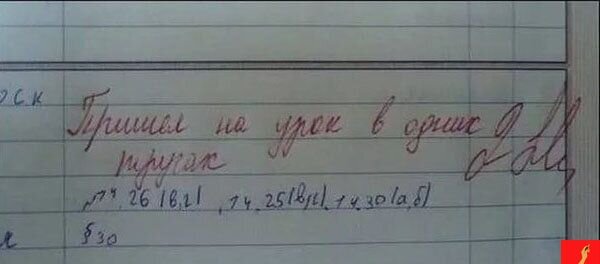 оск
Пришел на урок в одних 2
трусах
№14.26(в,г), 14.25(в,г), 14.30(а,б)
я §30